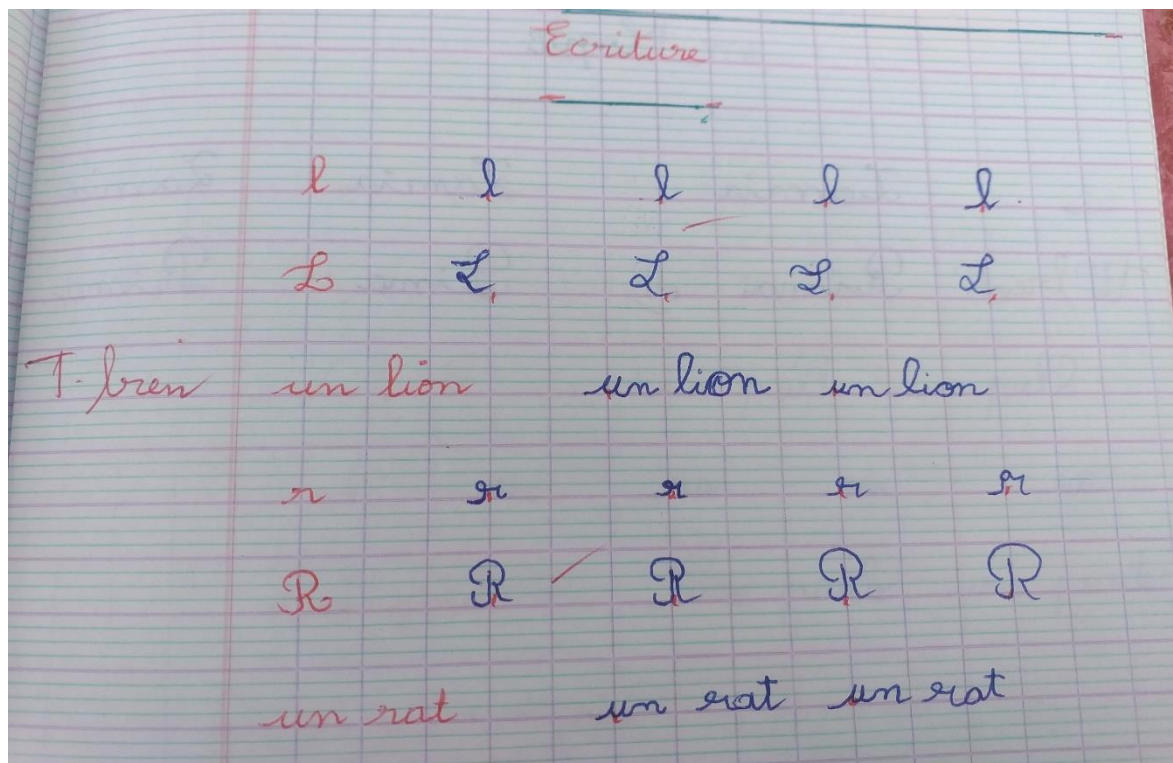 Ecriture
l l l l l.
L L L L L
T. bien un lion un lion un lion
r r r r r
R R R R R
un rat un rat un rat